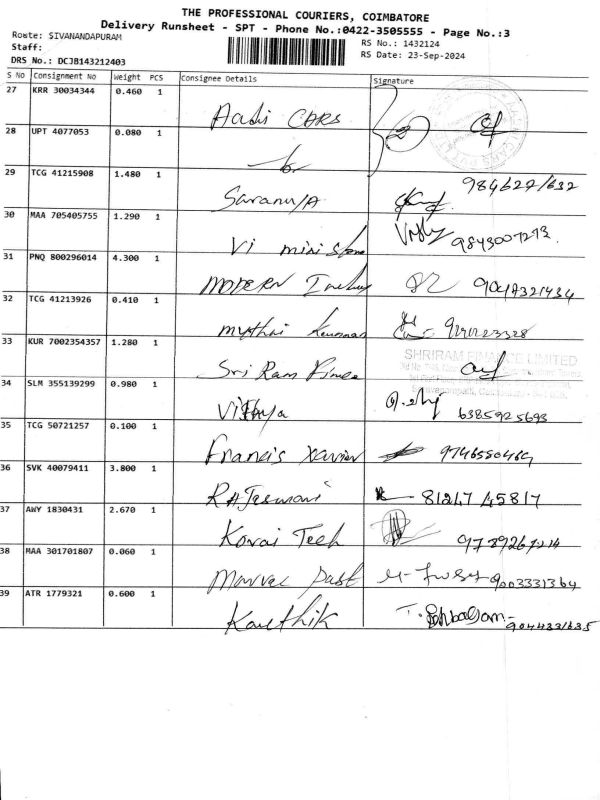 THE PROFESSIONAL COURIERS, COIMBATORE
Delivery Runsheet - SPT - Phone No.:0422-3505555 - Page No.:3
Route: SIVANANDAPURAM
RS No.: 1432124
Staff:
RS Date: 23-Sep-2024
DRS No.: DCJB143212403
S No Consignment No Weight PCS Consignee Details Signature
27 KRR 30034344 0.460 1 Aadi CARS
28 UPT 4077053 0.080 1
29 TCG 41215908 1.480 1 Saranya
30 MAA 705405755 1.290 1 Vi mini Store 9843007273
31 PNQ 800296014 4.300 1 MODERN
32 TCG 41213926 0.410 1
33 KUR 7002354357 1.280 1 Sri Ram
SHRIRAM FINANCE LIMITED
34 SLM 355139299 0.980 1 Vithya 6385925693
35 TCG 50721257 0.100 1 Francis Xavier
36 SVK 40079411 3.800 1 81247 45817
37 AWY 1830431 2.670 1 Kovai Tech
38 MAA 301701807 0.060 1 9003331364
39 ATR 1779321 0.600 1 Karthik